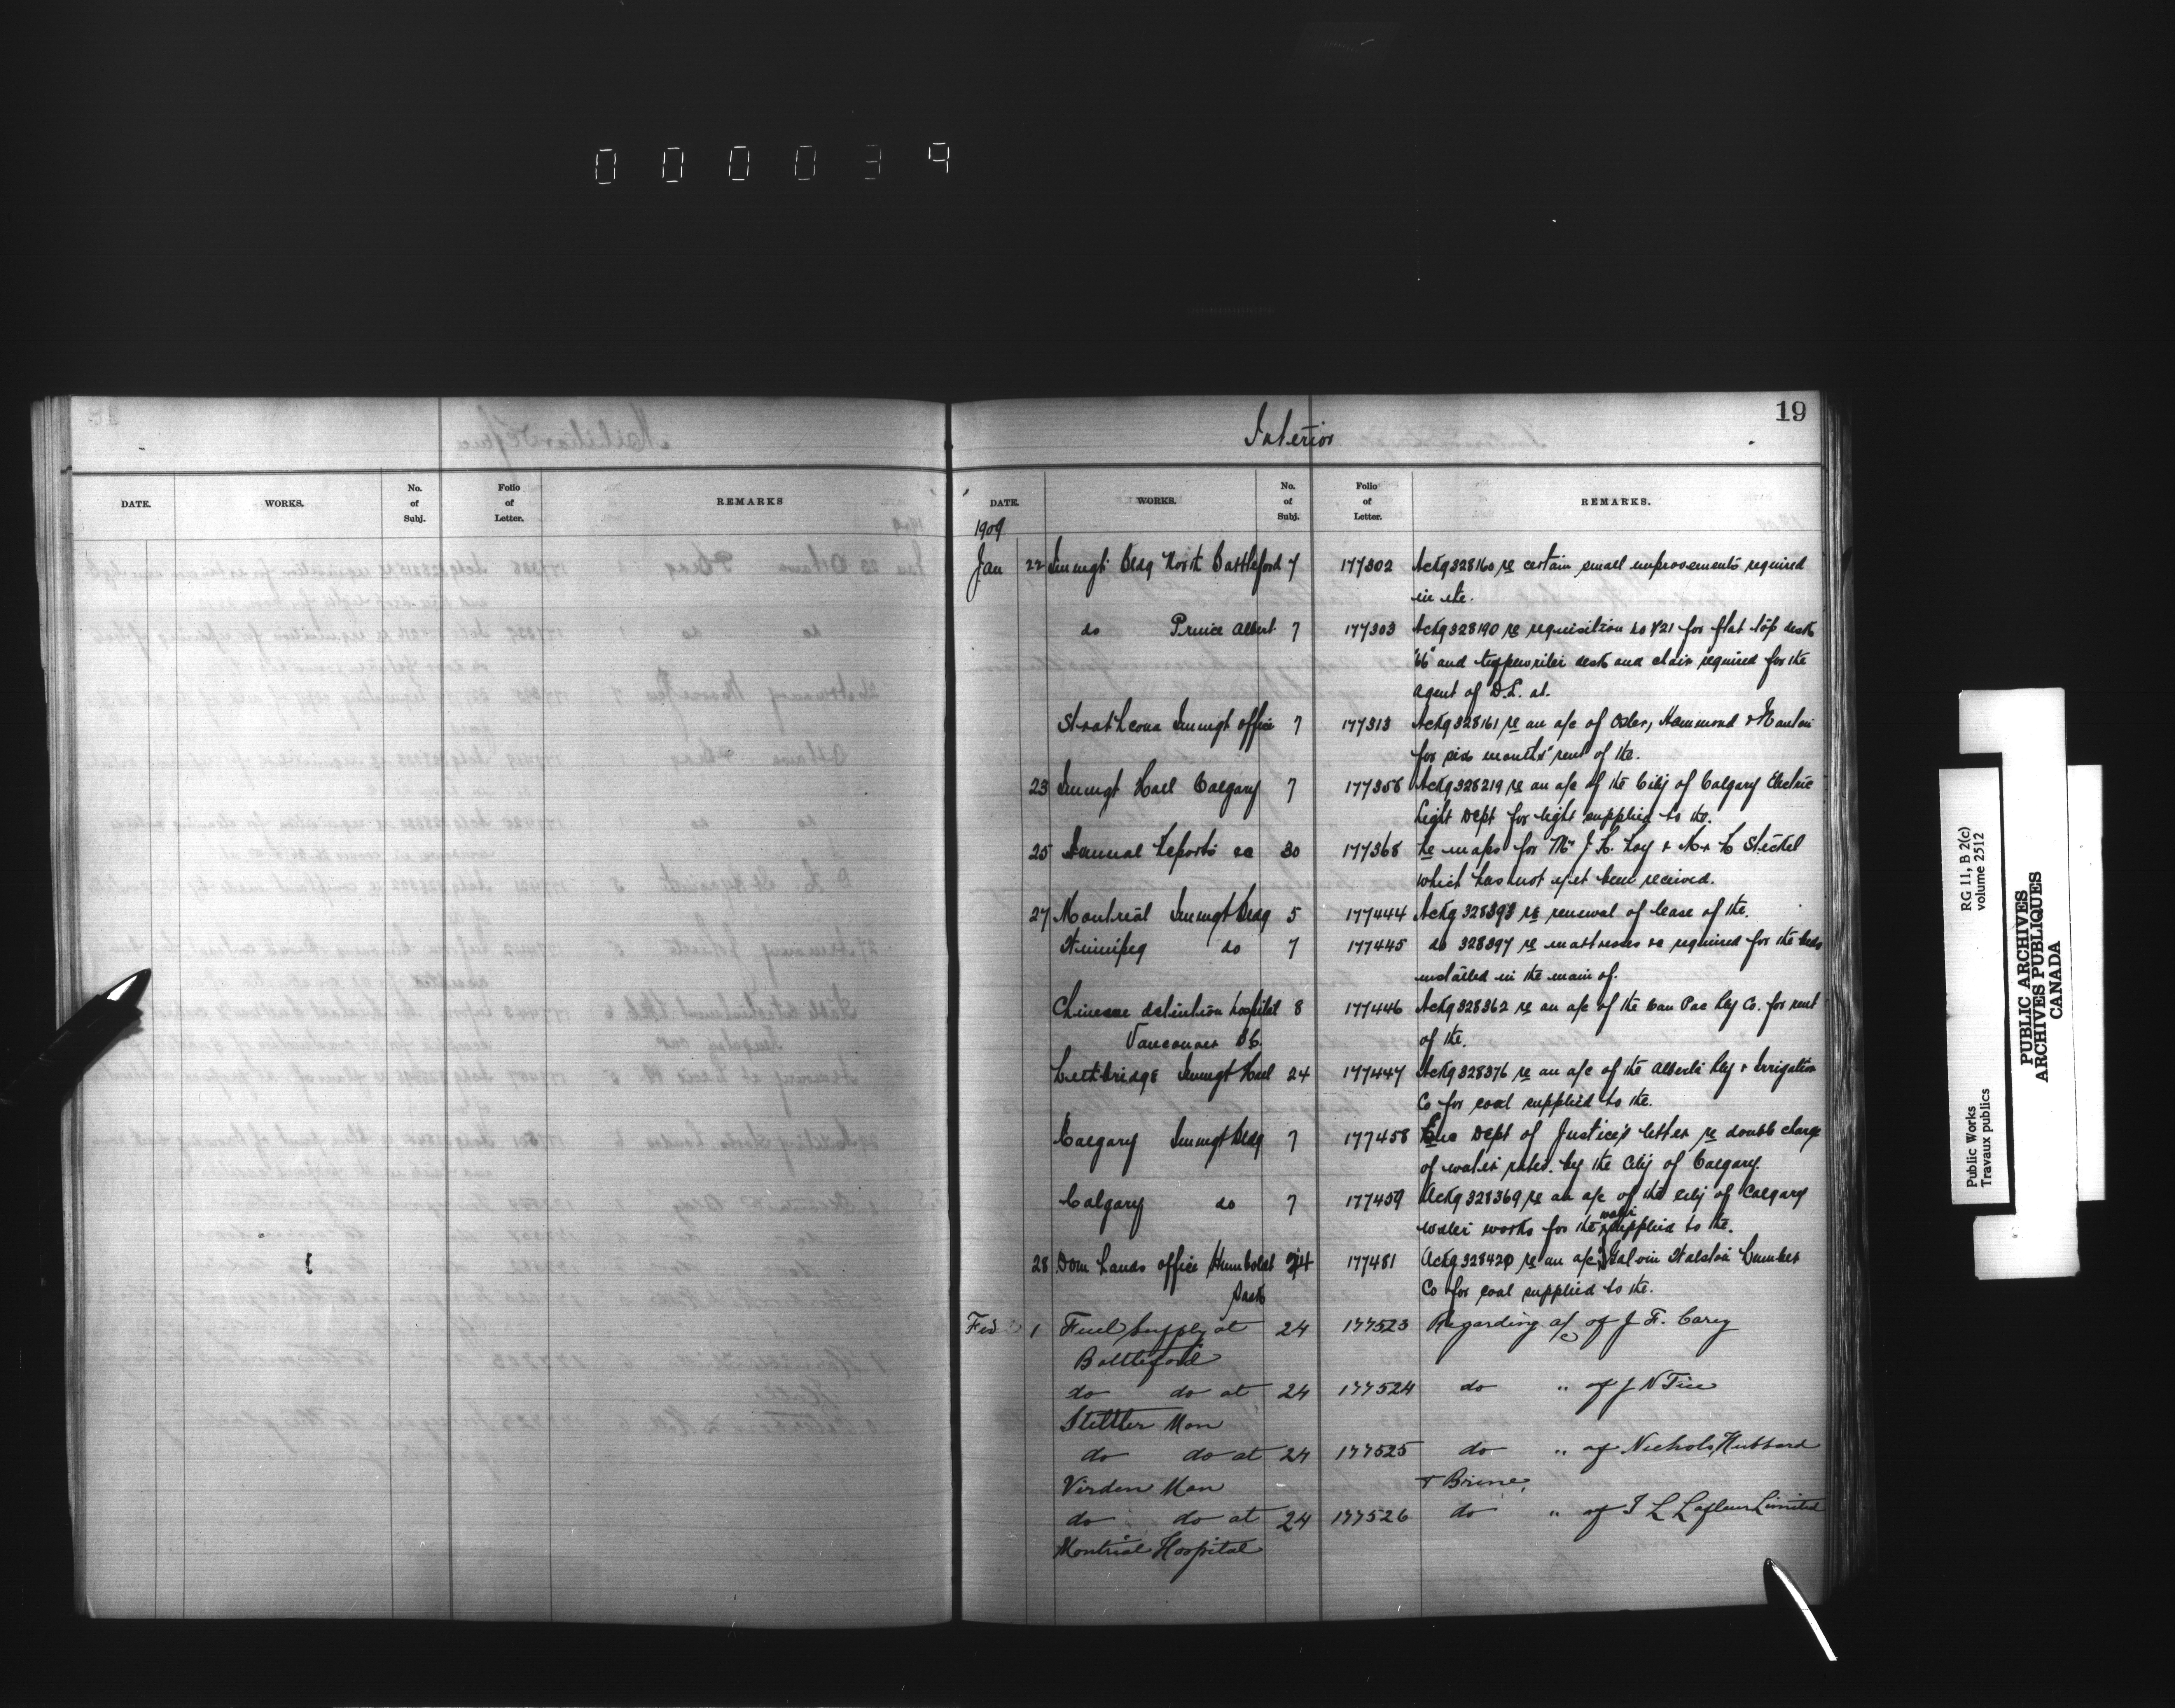 000039
19
Interior
DATE. WORKS. No. of Subj. Folio of Letter. REMARKS
DATE. WORKS. No. of Subj. Folio of Letter. REMARKS.
1909
Jan 22 Immgt Bldg North Battleford 7 177302 Ackg 328160 re certain small improvements required
in the.
do Prince Albert 7 177303 Ackg 328190 re requisition for flat top desk
"66" and typewriter desk and chair required for the
agent of D.L. at.
Strathcona Immgt office 7 177313 Ackg 328161 re an a/c of Osler, Hammond & Nanton
for six months' rent of the.
23 Immgt Hall Calgary 7 177358 Ackg 328219 re an a/c of the City of Calgary Electric
Light Dept for light supplied to the.
25 Annual Reports &c 30 177368 Re maps for Mr
which has not yet been received.
27 Montreal Immgt Bldg 5 177444 Ackg 328393 re renewal of lease of the.
Winnipeg do 7 177445 do 328397 re mattresses &c required for the beds
installed in the main of.
Chinese detention hospital 8 177446 Ackg 328362 re an a/c of the Can Pac Ry Co. for rent
Vancouver BC. of the.
Lethbridge Immgt Hall 24 177447 Ackg 328376 re an a/c of the Alberta Ry & Irrigation
Co for coal supplied to the.
Calgary Immgt Bldg 7 177458 Enc Dept of Justice's letter re double charge
of water rates. by the City of Calgary.
Calgary do 7 177459 Ackg 328369 re an a/c of the City of Calgary
water works for the water supplied to the.
28 Dom Lands office Humboldt 24 177481 Ackg 328420 re an a/c Lumber
Sask Co for coal supplied to the.
Feb 1 Fuel Supply at 24 177523 Regarding a/c of J. F. Carey
Battleford
do do at 24 177524 do " of J N Tice
Stettler Man
do do at 24 177525 do " of Nichols, Hubbard
Virden Man & Brine,
do do at 24 177526 do " of J L Lafleur Limited
Montreal Hospital
Public Works
Travaux publics
RG 11, B 2(c)
volume 2512
PUBLIC ARCHIVES
ARCHIVES PUBLIQUES
CANADA